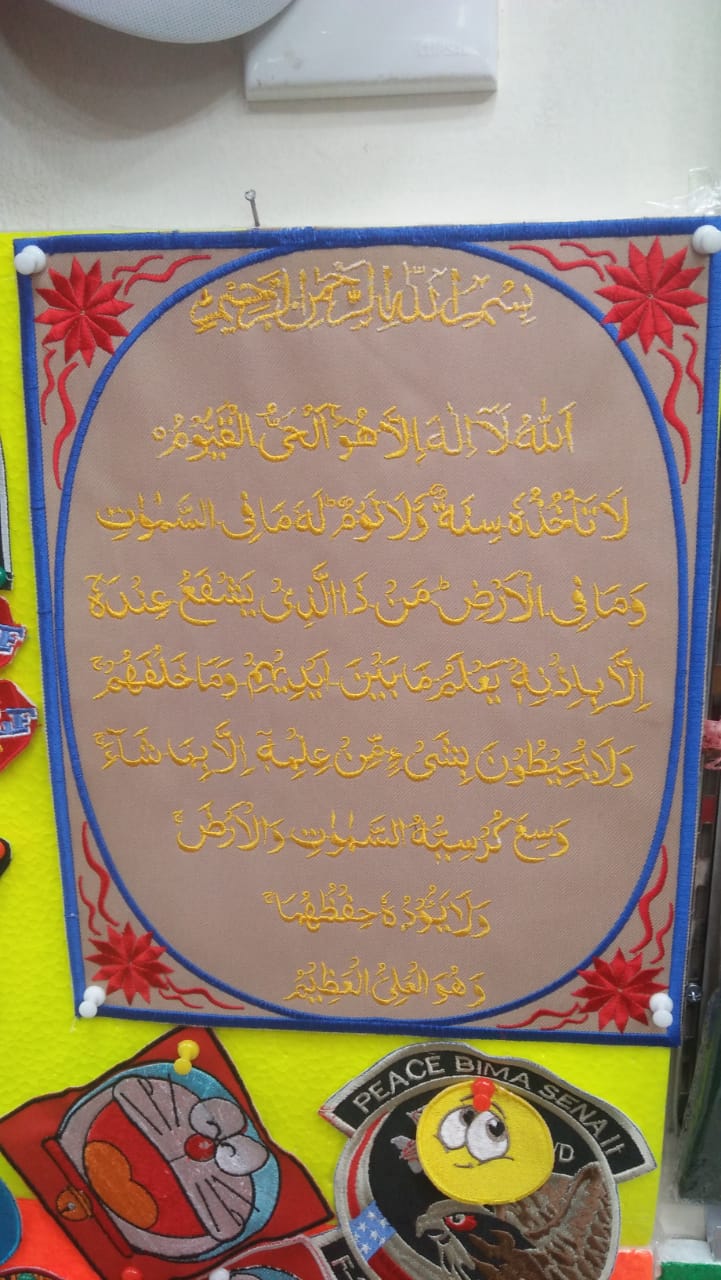 بِسْمِ اللّٰهِ الرَّحْمٰنِ الرَّحِيْمِ
اَللّٰهُ لَآ اِلٰهَ اِلَّا هُوَ اَلْحَىُّ الْقَيُّوْمُ
لَا تَاْخُذُهٗ سِنَةٌ وَّلَا نَوْمٌ لَهٗ مَا فِى السَّمٰوٰتِ
وَمَا فِى الْاَرْضِ مَنْ ذَا الَّذِىْ يَشْفَعُ عِنْدَهٗ
اِلَّا بِاِذْنِهٖ يَعْلَمُ مَا بَيْنَ اَيْدِيْهِمْ وَمَا خَلْفَهُمْ
وَلَا يُحِيْطُوْنَ بِشَىْءٍ مِّنْ عِلْمِهٖ اِلَّا بِمَا شَآءَ
وَسِعَ كُرْسِيُّهُ السَّمٰوٰتِ وَالْاَرْضَ
وَلَا يَؤُدُهٗ حِفْظُهُمَا
وَهُوَ الْعَلِىُّ الْعَظِيْمُ
PEACE BIMA SENA II